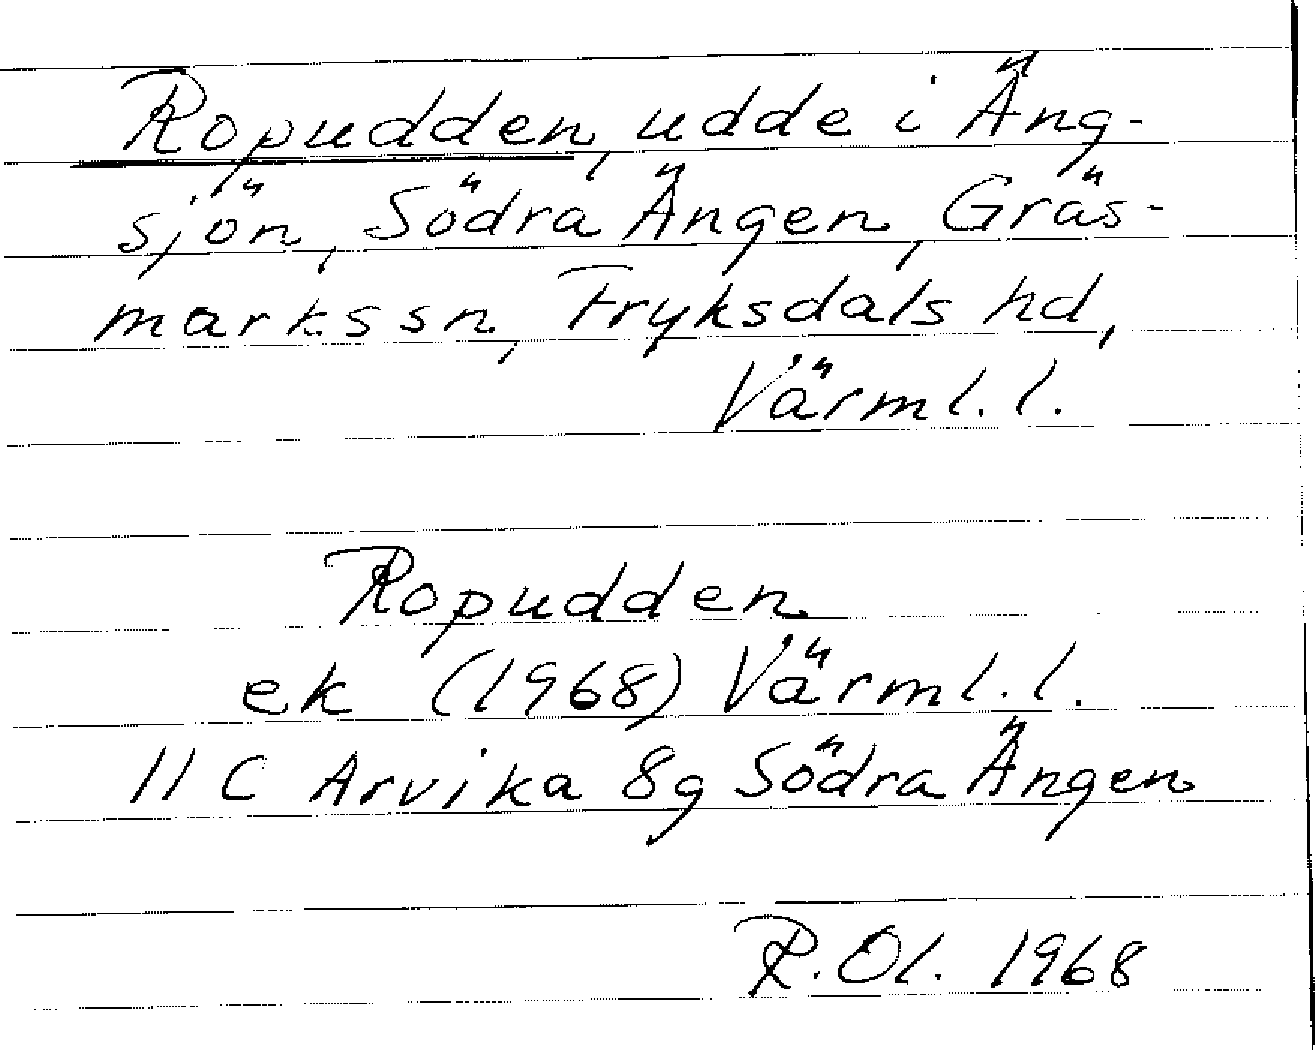 Ropudden, udde i Äng-
sjön, Södra Ängen, Gräs-
marks sn, Fryksdals hd,
Värml. l.
Ropudden
ek (1968) Värml. l.
11 C Arvika 8g Södra Ängen
R. Ol. 1968